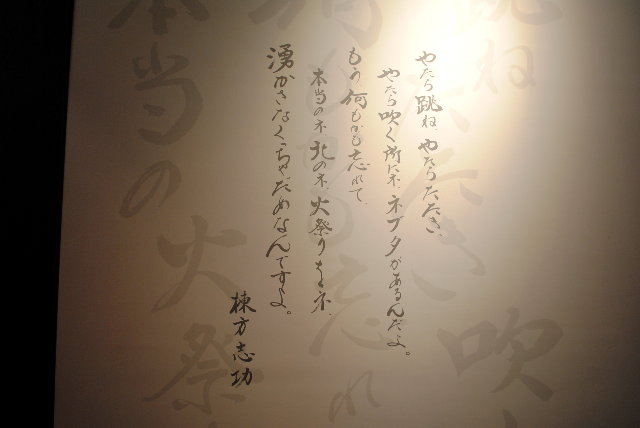 やたら跳ね、やたらたたき、
やたら吹く所にネ、ネブタがあるんだよ。
もう何もかも忘れて、
本当のネ、北のネ、火祭りをネ、
湧かさなくちゃだめなんですよ。
棟方志功
跳ね
たたき
吹
忘れ
本当の
火祭